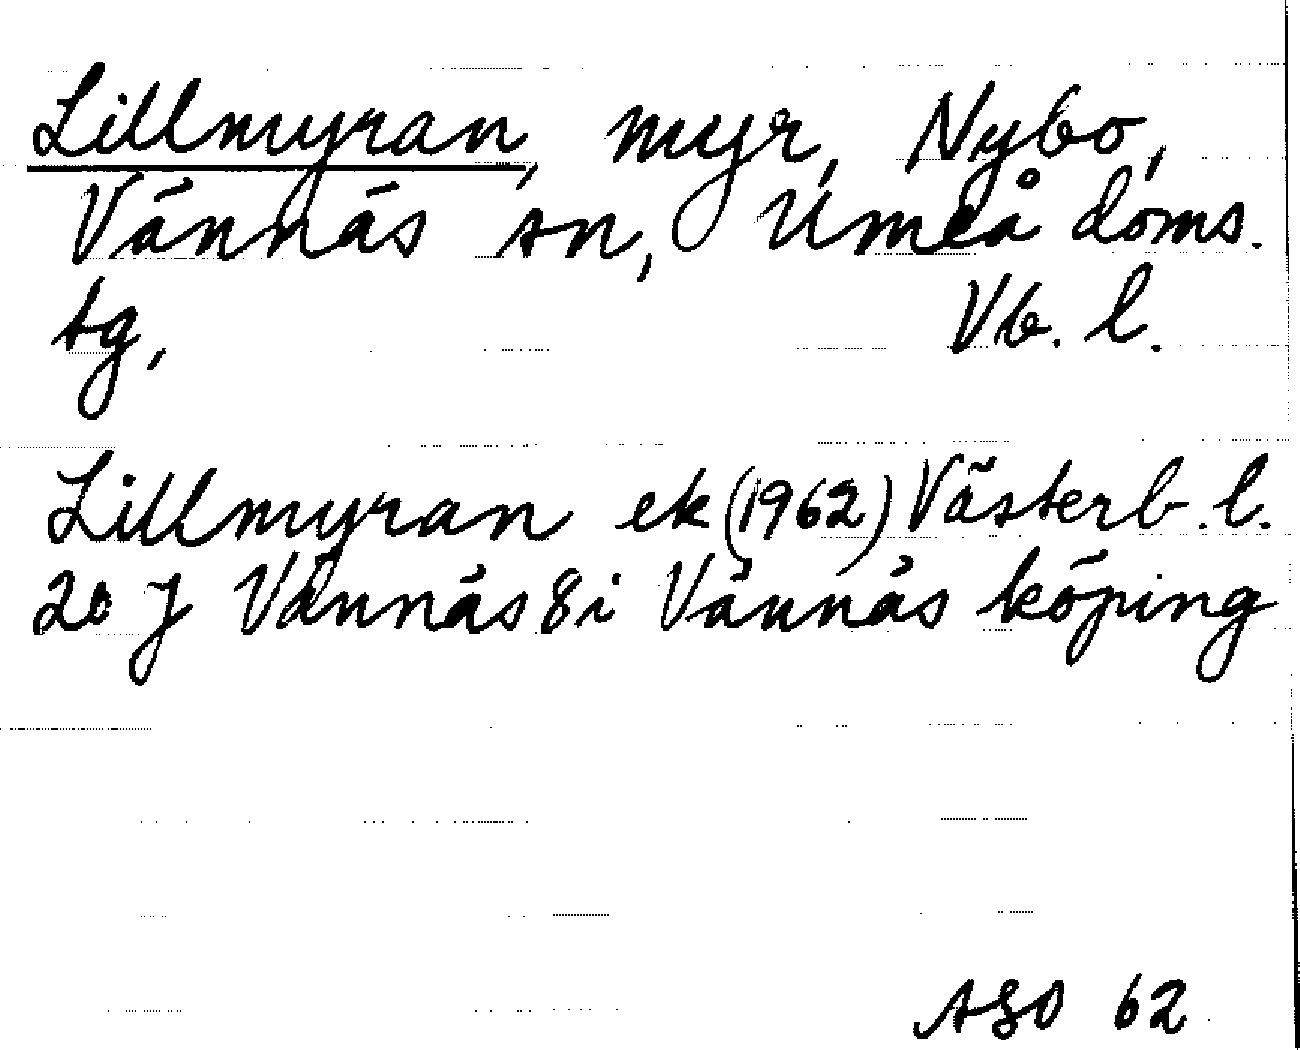 Lillmyran, myr, Nybo,
Vännäs sn, Umeå doms.
tg, Vb. l.
Lillmyran ek (1962) Västerb. l.
20 J Vännäs 8 i Vännäs köping
ASO 62